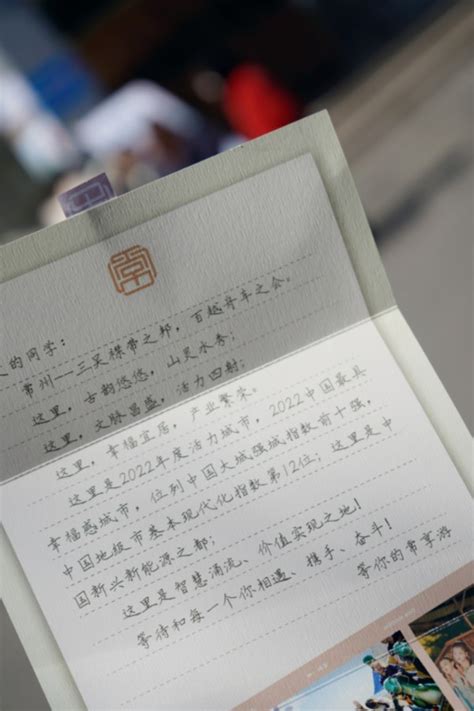 常
的同学：
常州——三吴襟带之邦，百越舟车之会。
这里，古韵悠悠，山灵水秀；
这里，文脉昌盛，活力四射；
这里，幸福宜居，产业繁荣。
这里是2022年度活力城市，2022中国最具
幸福感城市，位列中国大城强城指数前十强，
中国地级市基本现代化指数第12位；这里是中
国新兴新能源之都；
这里是智慧涌流、价值实现之地！
等待和每一个你相遇、携手、奋斗！
等你的常享游